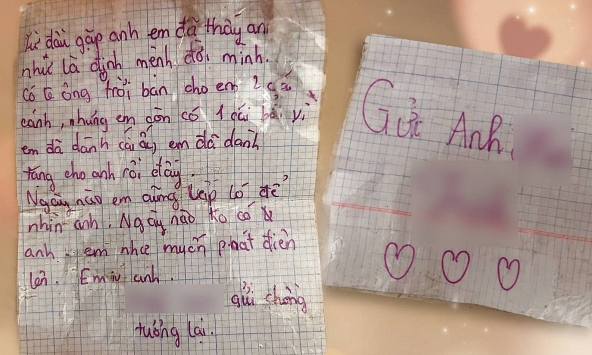 Từ đầu gặp anh em đã thấy an
như là định mệnh đời mình.
có lẽ ông trời ban cho em 2 cái
cánh, nhưng em còn có 1 cái bởi vì
em đã dành cái ấy em đã danh
tặng cho anh rồi đấy.
Ngày nào em cũng lấp ló để
nhìn anh. Ngày nào ko có
anh. em như muốn phát điên
lên. Em iu anh.
gửi chồng
tương lại.
Gửi Anh